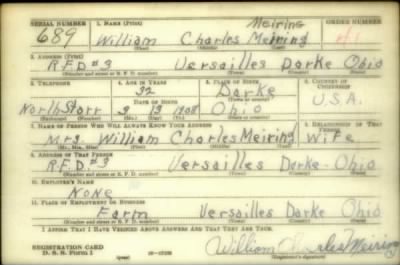 SERIAL NUMBER 1. NAME (Print) Meiring ORDER NUMBER
689 William Charles Meiring
(First) (Middle) (Last)
2. ADDRESS (Print)
R.F.D #3 Versailles Darke Ohio
(Number and street or R. F. D. number) (Town) (County) (State)
3. TELEPHONE 4. AGE IN YEARS 5. PLACE OF BIRTH 6. COUNTRY OF CITIZENSHIP
32 Darke
DATE OF BIRTH
North Starr 1908 Ohio U.S.A.
(Exchange) (Number) (Mo.) (Day) (Yr.) (State or country)
7. NAME OF PERSON WHO WILL ALWAYS KNOW YOUR ADDRESS 8. RELATIONSHIP OF THAT PERSON
Mrs William Charles Meiring Wife
(Mr., Mrs., Miss) (First) (Middle) (Last)
9. ADDRESS OF THAT PERSON
R.F.D #3 Versailles Darke-Ohio
(Number and street or R. F. D. number) (Town) (County) (State)
10. EMPLOYER'S NAME
None
11. PLACE OF EMPLOYMENT OR BUSINESS
Farm Versailles Darke Ohio
(Number and street or R. F. D. number) (Town) (County) (State)
I AFFIRM THAT I HAVE VERIFIED ABOVE ANSWERS AND THAT THEY ARE TRUE.
REGISTRATION CARD William Charles Meiring
D. S. S. Form 1 (Registrant's signature)